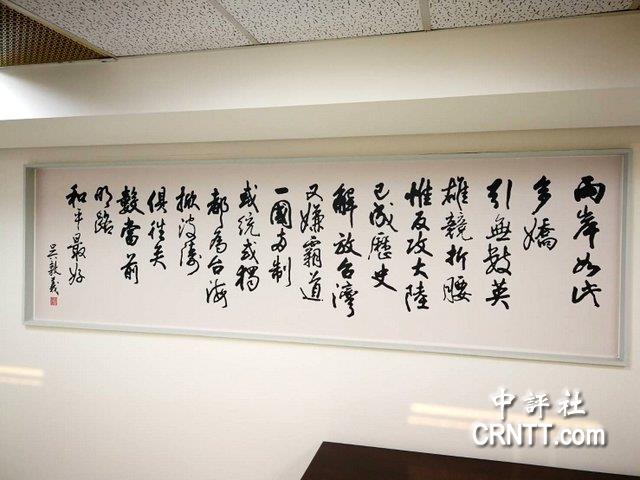 兩岸如此
多嬌
引無數英
雄競折腰
惟反攻大陸
已成歷史
解放台灣
又嫌霸道
一國兩制
或統或獨
都為台海
掀波濤
俱往矣
數當前
明路
和平最好
吳敦義
中評社
CRNTT.com